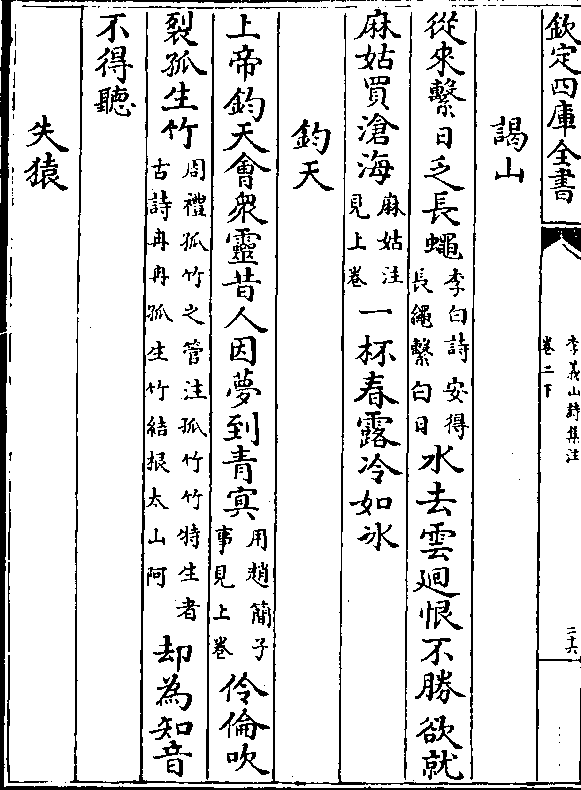 欽定四庫全書
李義山詩集注
卷二下
二六
謁山
從來繫日乏長蠅李白詩安得
長繩繫白日水去雲廻恨不勝欲就
麻姑買滄海麻姑注
見上卷一杯春露冷如冰
鈞天
上帝鈞天會衆靈昔人因夢到青㝠用趙簡子
事見上卷伶倫吹
裂孤生竹周禮孤竹之管注孤竹竹特生者
古詩冉冉孤生竹結根太山阿却為知音
不得聽
失猿